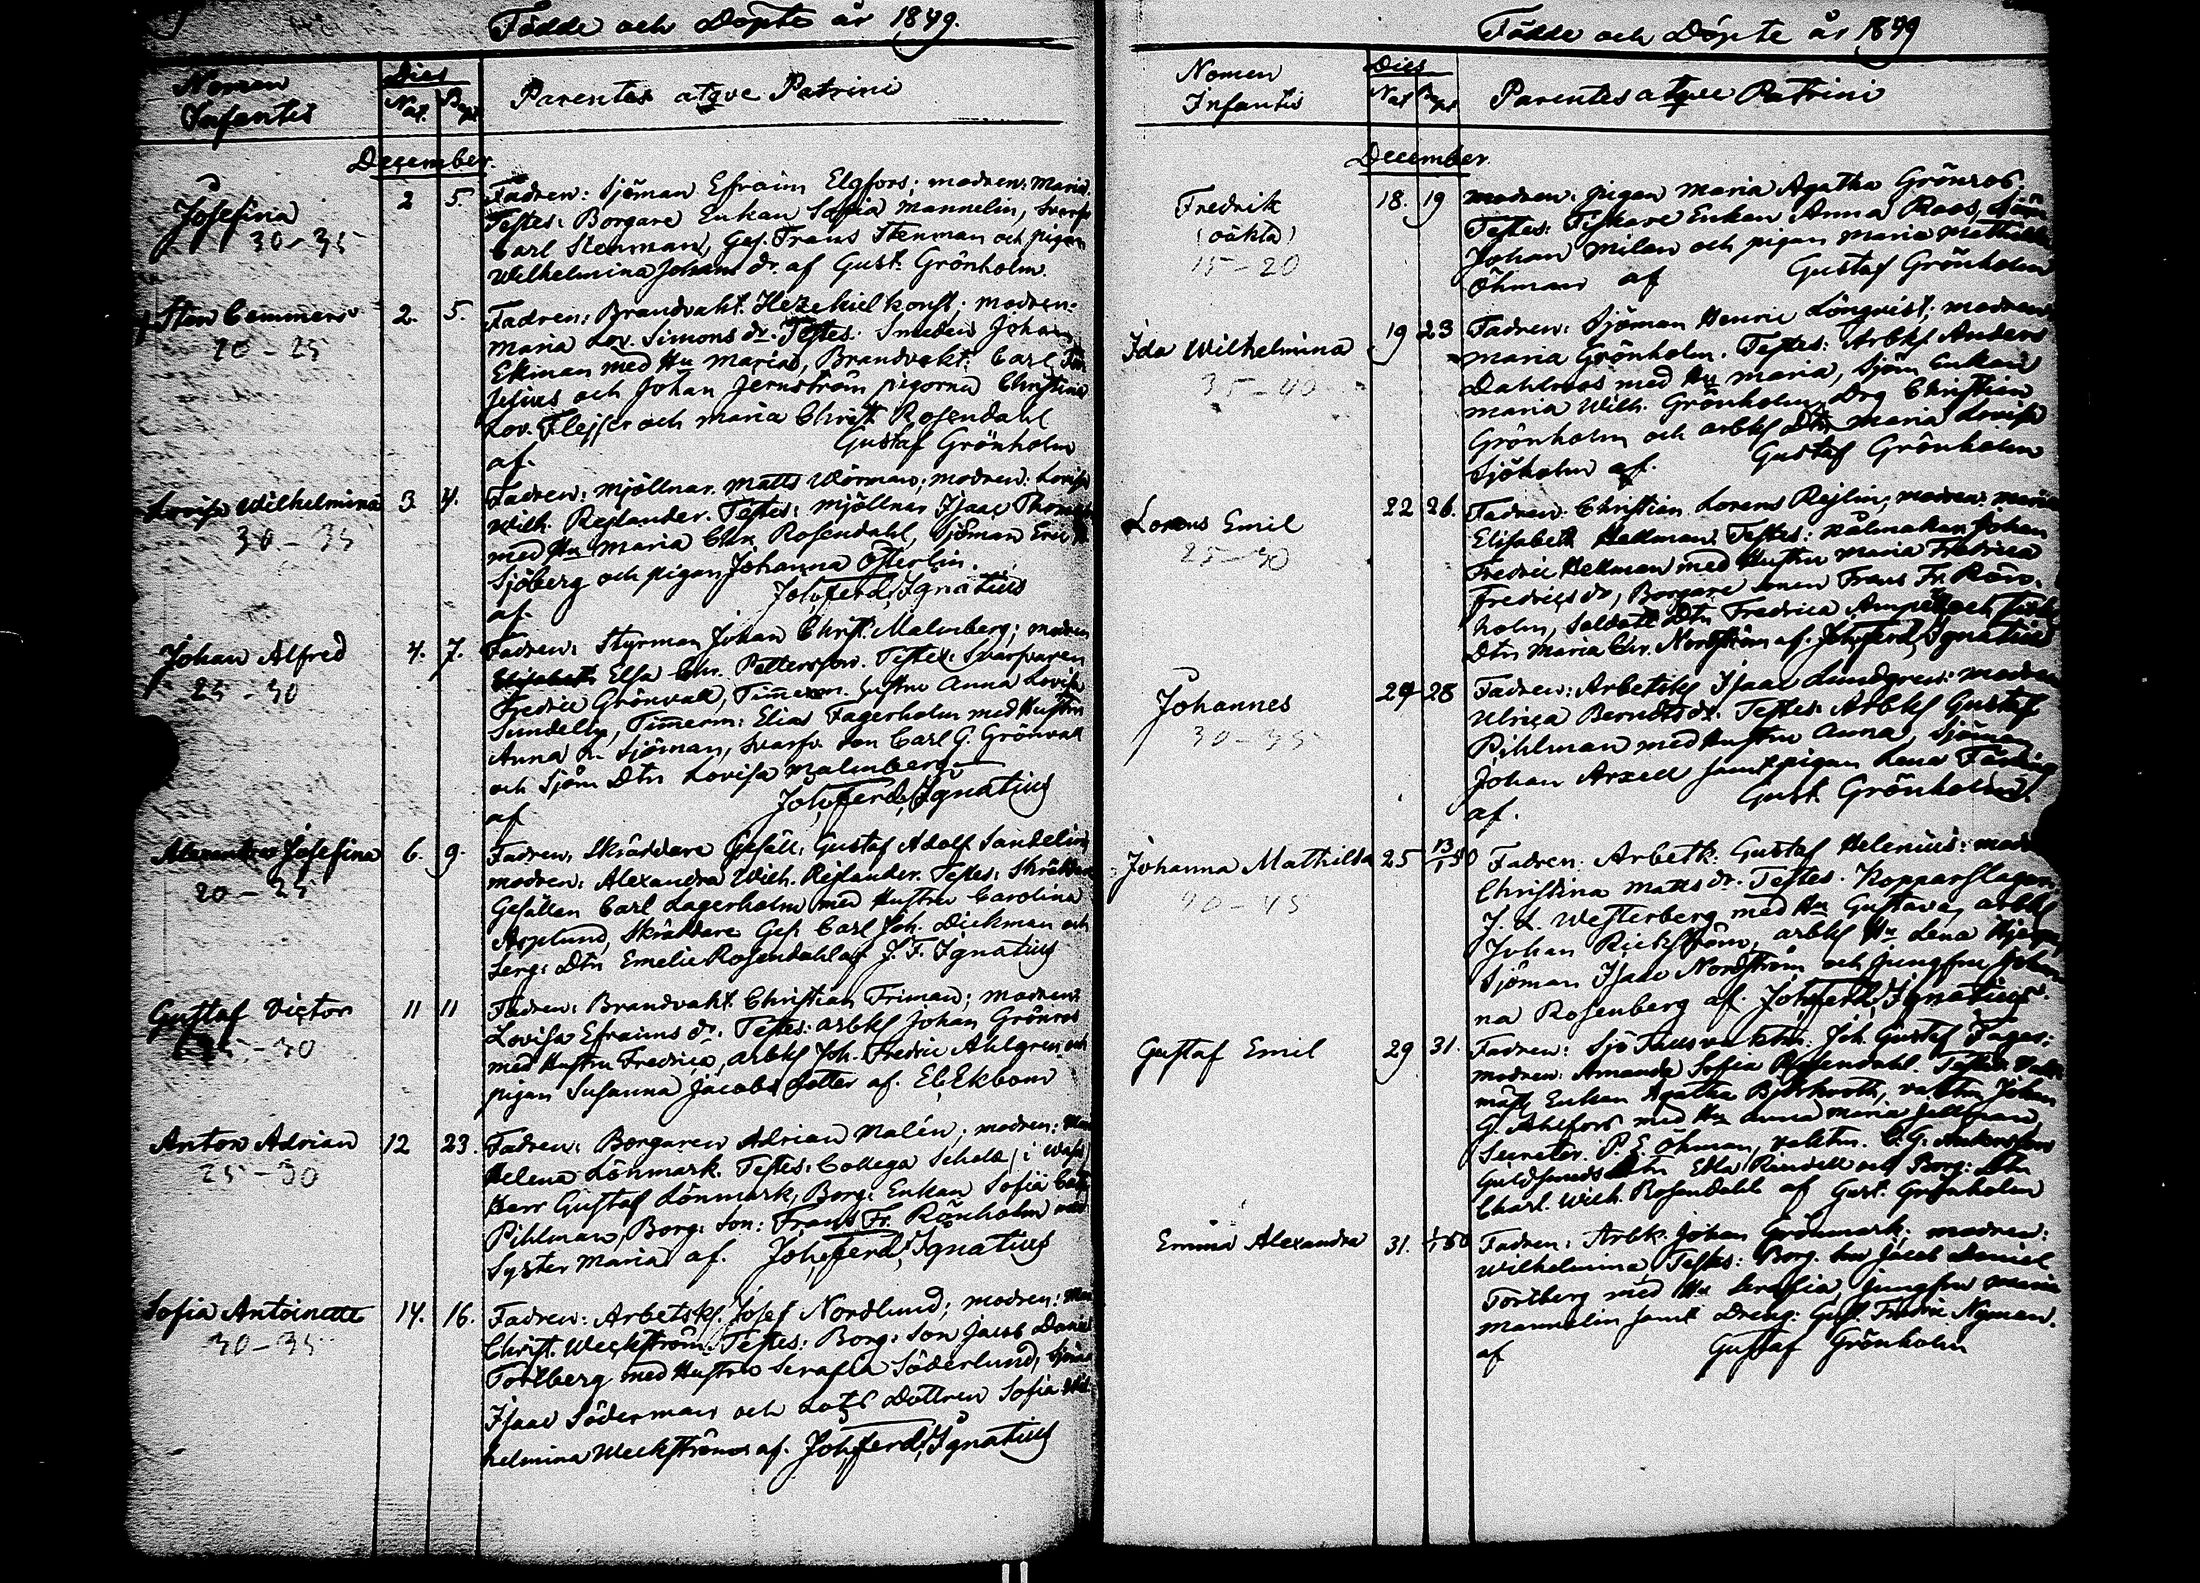 Födde och Döpte år 1849.
Nomen Infantis
Dies
Nat. Bapt.
Parentes atqve Patrini
December.
Josefina
30-35
2 5.
Fadren: Sjöman Efraim Elgfors; modren: Maria.
Testes: Borgare Enkan Sofia Mannelin, Svarfv
Carl Stenman, Ges. Frans Stenman och pigan
Wilhelmina Johans dr. af Gust. Grönholm
Sten Clemmens
20-25
2. 5.
Fadren: Brandvakt. Hezekiel Konst; modren:
Maria Lov. Simons dr. Testes: Smeden Johan
Ekman med Hu Maria, Brandvakt: Carl
och Johan Jernström pigorna Christina
Lov. Flejser och Maria Christ. Rosendahl
af. Gustaf Grönholm
Lovisa Wilhelmina
30-35
3 4.
Fadren: Mjöllnar. Matts Wörman; modren: Lovisa
Wilh. Rejlander. Testes: Mjöllnar Isaac
med Hu Maria Chr. Rosendahl, Sjöman Eric
Sjöberg och pigan Johanna Österlin.
af. Joh. Ferd. Ignatius
Johan Alfred
25-30
4. 7.
Fadren: Styrman Johan Christ. Malmberg; modren
Elsa Chr. Pettersson. Testes: Svarfvaren
Fredric Grönvall, Timmerm. Hustru Anna Lovisa
Sundell, Timmerm: Elias Fagerholm med Hustru
Anna L. Sjöman, Svarfv. Son Carl G. Grönvall
och Sjöm Dtn Lovisa Malmberg.
af Joh. Ferd. Ignatius
Alexandra Josefina
20-25
6. 9.
Fadren: Skräddare Gesäll: Gustaf Adolf Sandelin
modren: Alexandra Wilh. Rejlander. Testes: Skräddar
Gesällen Carl Lagerholm med Hustru Carolina
Asplund, Skräddare Ges. Carl Joh. Dickman och
Serg: Dtn Emelie Rosendahl af J. F. Ignatius
Gustaf Victor
25-30
11 11
Fadren: Brandvakt. Christian Friman; modren:
Lovisa Efraims dr. Testes: arbks Johan Grönros
med Hustru Fredrica, arbks Joh. Fredric Ahlgren och
pigan Susanna Jacobs dotter af. El. Ekbom
Anton Adrian
25-30
12 23.
Fadren: Borgaren Adrian Malén; modren:
Helena Lönmark. Testes: Collega Schola i Wasa
Herr Gustaf Lönmark, Borg: Enkan Sofia
Pihlman, Borg: Son: Frans Fr. Rönholm med
Syster Maria af. Joh. Ferd. Ignatius
Sofia Antoinette
30-35
14. 16.
Fadren: Arbetsk. Josef Nordlund; modren:
Christ. Weckström. Testes: Borg: Son Jacob Daniel
Tortberg med Hustru Serafia Söderlund, Sjöman
Isaac Söderman och Lots Dottren Sofia Wil
helmina Weckström af. Joh. Ferd. Ignatius
Födde och Döpte år 1849
Nomen Infantis
Dies
Nat Bapt
Parentes atqve Patrini
December.
Fredrik
(oäkta)
15-20
18. 19
modren: pigan Maria Agatha Grönros.
Testes: Fiskare Enkan Anna Roos, Sjöm
Johan Milan och pigan Maria Mathilda
Öhman af Gustaf Grönholm
Ida Wilhelmina
35-40
19 23
Fadren: Sjöman Henric Lönqvist; modren
Maria Grönholm. Testes: Arbks Anders
Dahlroos med Hu Maria, Sjöm Enkan
Maria Wilh. Grönholm, Drg Christian
Grönholm och arbks Dtn Maria Lovisa
Sjöholm af. Gustaf Grönholm
Lorens Emil
25-30
22 26.
Fadren: Christian Lorens Rejlin; modren: Maria
Elisabeth Hellman. Testes: Nålmakar Johan
Fredric Hellman med Hustru Maria Fredrica
Fredrics dr, Borgare sonen Frans Fr. Rön-
holm, Soldate Dtn Fredrica
Dtn Maria Chr. Nordström af. Joh. Ferd. Ignatius
Johannes
30-35
24 28
Fadren: Arbetsks Isaac Lundgren: modren
Ulrica Berndts dr. Testes: Arbks Gustaf
Pihlman med Hustru Anna, Sjöman
Johan Arzell samt pigan Lena
af. Gust. Grönholm.
Johanna Mathilda
40-45
25 13/1 50
Fadren: Arbetk: Gustaf Helenius: modr
Christina Matts dr. Testes: Kopparslagar
J. L. Westerberg med Hu Gustava, arbks
Johan Rickström, arbks Hu Lena
Sjöman Isaac Nordström och jungfru Johan
na Rosenberg af. Joh. Ferd. Ignatius.
Gustaf Emil
29 31.
Fadren: Sjö Tullsvaktm: Joh Gustaf Fager:
modren: Amanda Sofia Rosendahl. Testes: Vakt
mäst. Enkan Agatha Björkroth, vaktm Johan
G. Ahlfors med Hu Anna Maria Jellman,
Secreter. P. E. Öhman, vaktm. C. G. Andersson
Guldsmeds Dtn Edla Rindell och Borg: Dtn
Charl. Wilh. Rosendahl af Gust. Grönholm
Emma Alexandra
31. 1/1 50
Fadren: Arbk. Johan Grönmark; modren:
Wilhelmina. Testes: Borg. Son Jacob Daniel
Tortberg med Hu Serafia, jungfru Maria
Mannelin samt Dreng: Gust. Fredric Nyman.
af Gustaf Grönholm